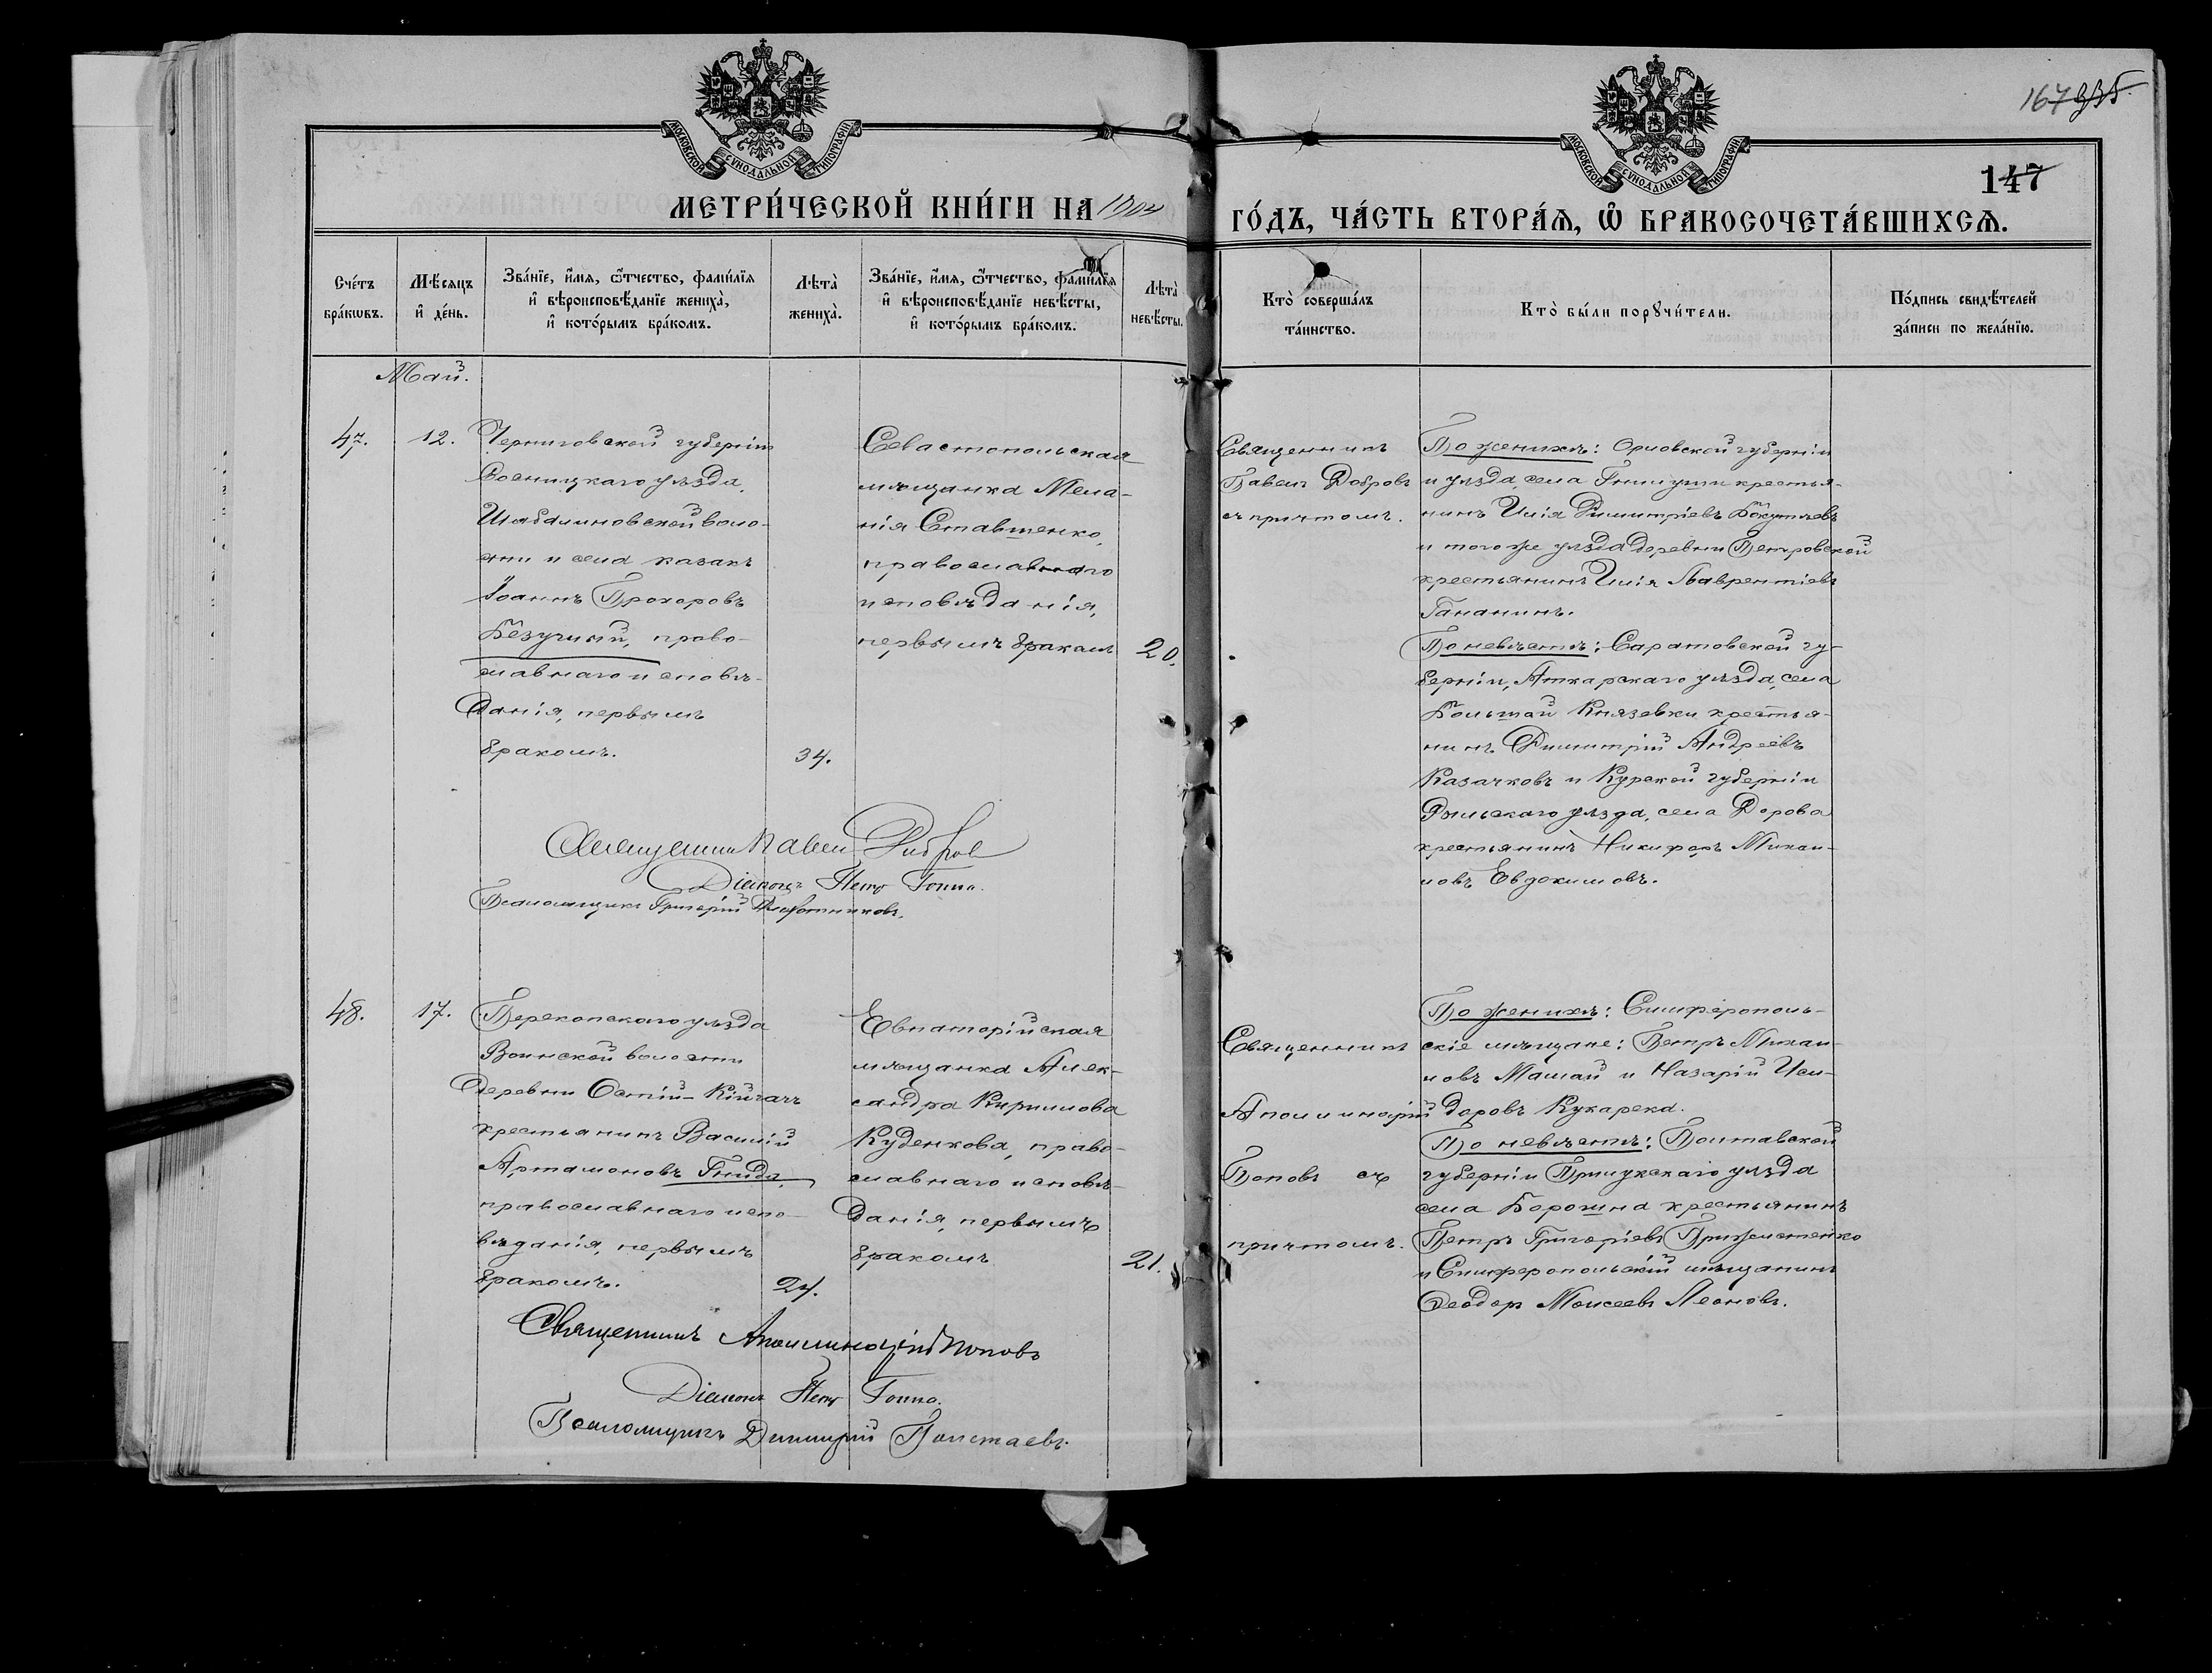 167
147
МОСКОВСКОЙ СѴНОДАЛЬНОЙ ТИПОГРАФІИ
МОСКОВСКОЙ СѴНОДАЛЬНОЙ ТИПОГРАФІИ
МЕТРИ́ЧЕСКОЙ КНИ́ГИ НА 1904 ГО́ДЪ, ЧА́СТЬ ВТОРА́Ѧ, Ѽ БРАКОСОЧЕТА́ВШИХСѦ.
Сче́тъ
бра́кѡвъ.
Мѣ́сѧцъ
и҆ де́нь.
Зва́нїе, и҆́мѧ, ѻ҆́тчество, фами́лїѧ
и҆ вѣроисповѣ́данїе жениха̀,
и҆ кото́рымъ бра́комъ.
Лѣта̀
жениха̀.
Зва́нїе, и҆́мѧ, ѻ҆́тчество, фами́лїѧ
и҆ вѣроисповѣ́данїе невѣ́сты,
и҆ кото́рымъ бра́комъ.
Лѣта̀
невѣ́сты.
Кто̀ соверша́лъ
та́инство.
Кто̀ бы́ли порꙋчи́тели.
По́дпись свидѣ́телей
за́писи по жела́нїю.
Май.
47.
12.
Черниговской губерніи
Сосницкаго уѣзда,
Шабалиновской воло-
сти и села казакъ
Іоаннъ Прохоровъ
Безуглый, право-
славнаго исповѣ-
данія, первымъ
бракомъ.
34.
Севастопольская
мѣщанка Мела-
нія Ставшенко,
православнаго
исповѣданія,
первымъ бракомъ
20.
Священникъ
Павелъ Добровъ
съ причтомъ.
По женихѣ: Орловской губерніи
и уѣзда, села крестья-
нинъ Илія Димитріевъ
и того же уѣзда деревни Петровской
крестьянинъ Илія Лаврентіевъ
Гананинъ.
По невѣстѣ: Саратовской гу-
берніи, Аткарскаго уѣзда, села
Большой Князевки крестья-
нинъ Димитрій Андреевъ
Казачковъ и Курской губерніи
Рыльскаго уѣзда, села Дорова
крестьянинъ Никифоръ Михаи-
ловъ Евдокимовъ.
Священникъ Павелъ Добровъ
Діаконъ Петръ Гоппа.
Псаломщикъ Григорій
48.
17.
Перекопскаго уѣзда
Воинской волости
деревни
крестьянинъ Василій
Артамоновъ Гнида,
православнаго испо-
вѣданія, первымъ
бракомъ.
24.
Евпаторійская
мѣщанка Алек-
сандра Кириллова
Куденкова, право-
славнаго исповѣ-
данія, первымъ
бракомъ
21.
Священникъ
Аполлинарій
Поповъ съ
причтомъ.
По женихѣ: Симферополь-
скіе мѣщане: Петръ Михаи-
ловъ Мамай и Назарій Иси-
доровъ Кукарека.
По невѣстѣ: Полтавской
губерніи Прилукскаго уѣзда
села крестьянинъ
Петръ Григоріевъ
и Симферопольскій мѣщанинъ
Ѳеодоръ Моисеевъ Леоновъ.
Священникъ Аполлинарій Поповъ
Діаконъ Петръ Гоппа.
Псаломщикъ Димитрій Полетаевъ.